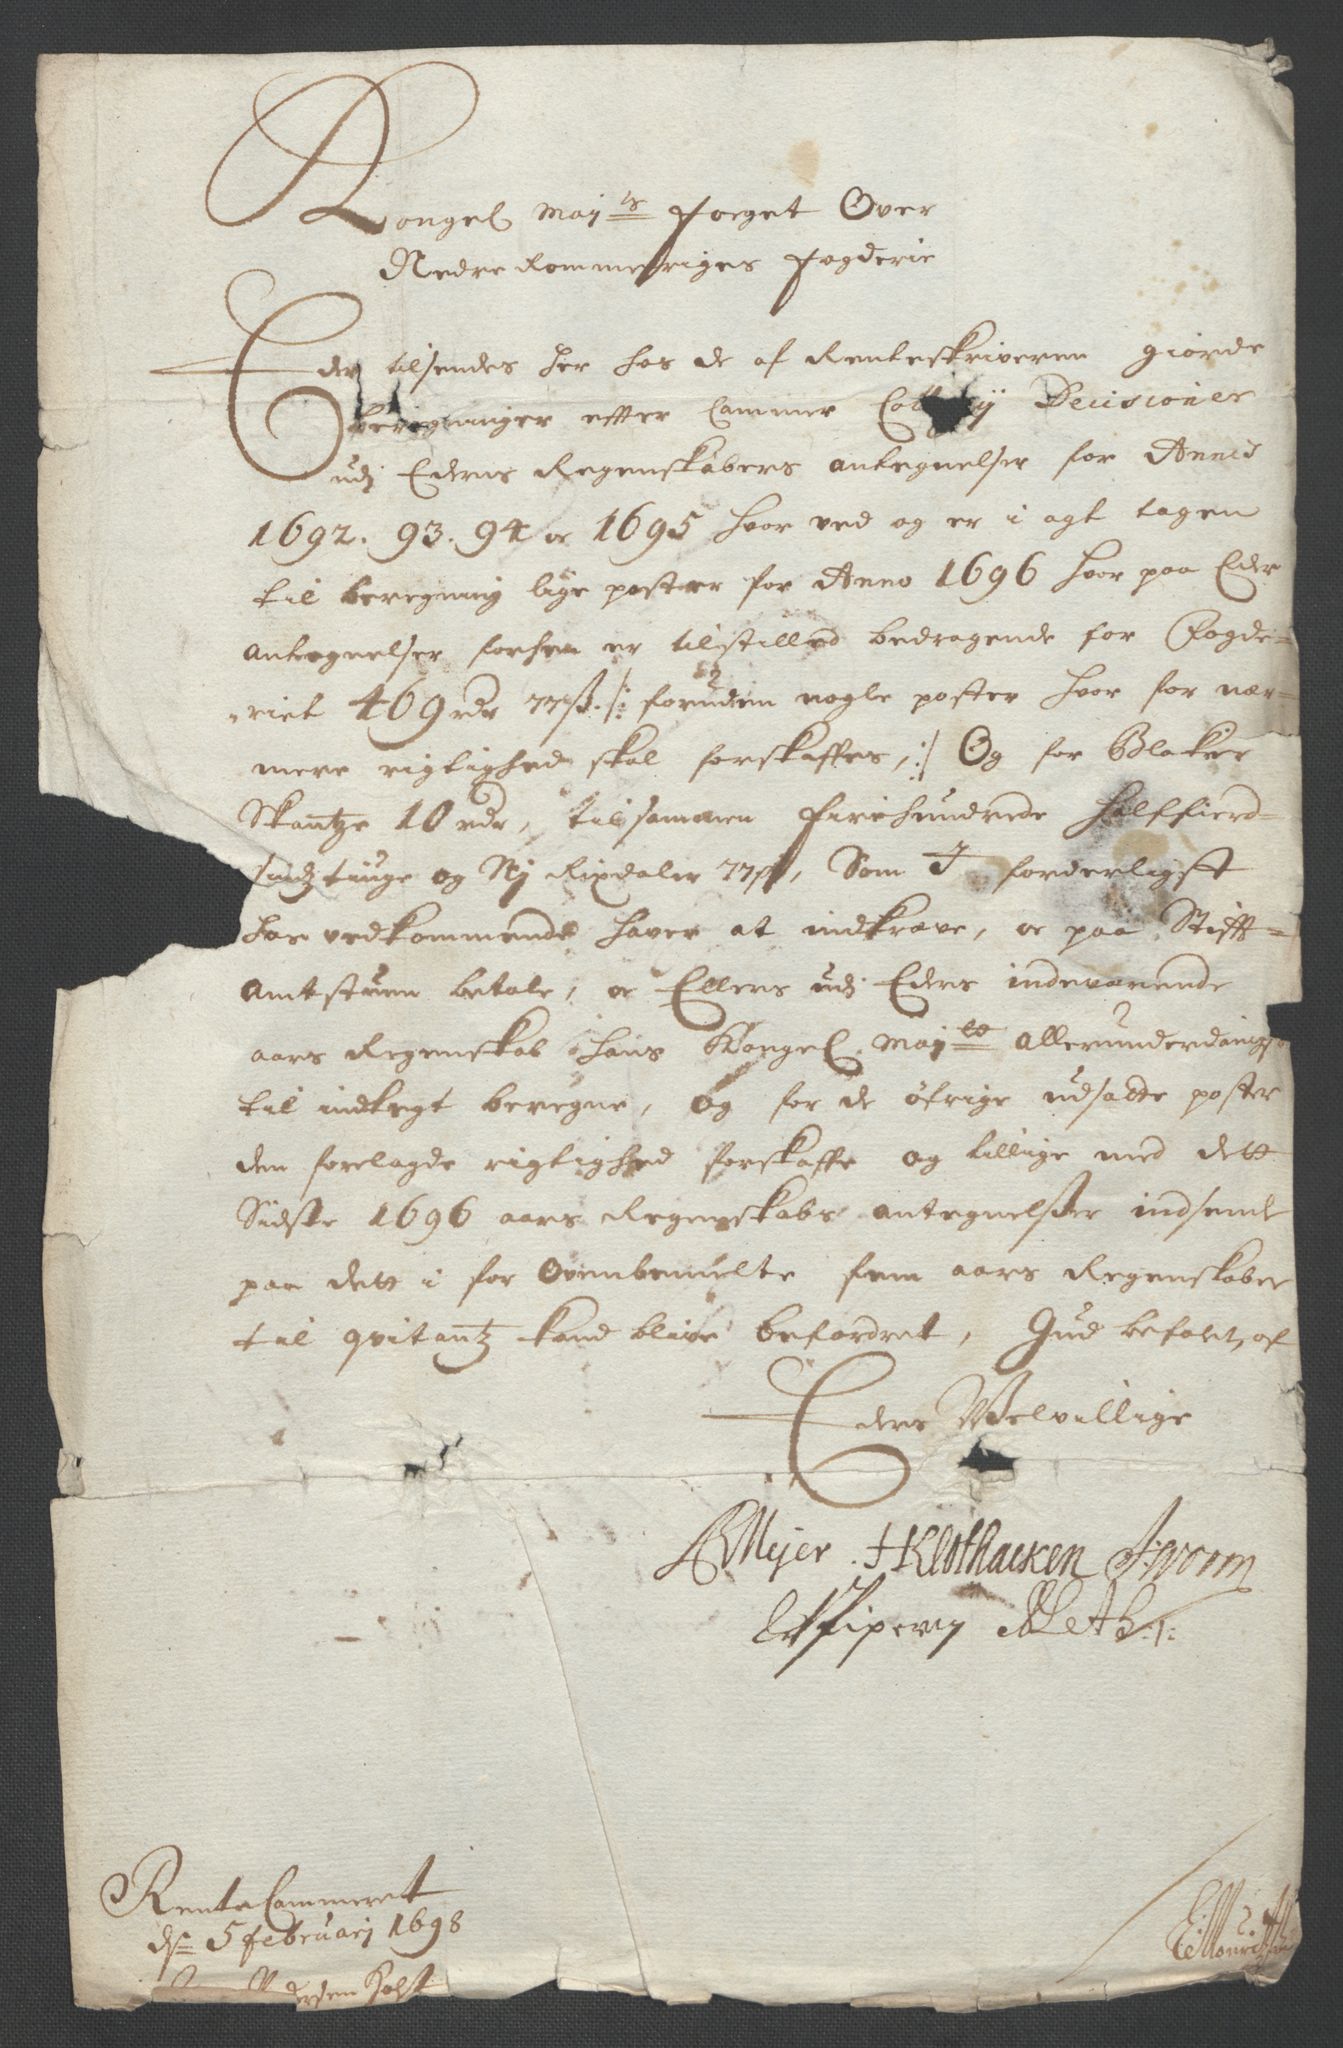 Kongel Maytz Foeget Over
Nedre Rommeriges Fogderie
Eder tilsendes her hos de af Renteskriveren giorde
beregninger effter Cammer Decisioner
udj Eders Regenskabers antegnelser for Annis
1692. 93. 94 oc 1695 hvor ved og er i agt tagen
til beregning lige poster for Anno 1696 hvor paa Eder
antegnelser forhen er tilstilled bedragende for Fogde-
riet 469 rdr 77 ß /: foruden nogle poster hvor for nær-
mere rigtighed skal forskaffes, :/ Og for Blakier
Skantze 10 rdr, tilsammen Firehundrede halffierd-
sindztiuge og Nj Rixdaler 77 ß, Som I forderligst
hos vedkommende haver at indkræve, oc paa Stifft-
amtstuen betale, oc Ellers udj Eders indeværende
aars Regenskab hans Kongel Mayts allerunderdanigst
til indtegt beregne, Og for de øfrige udsadte poster
den forelagde rigtighed forskaffe og tillige med dett
Sidste 1696 aars Regenskabs antegnelser indsende
paa dett i for Ovenbemelte fem aars Regenskaber
til qvitantz kand blive befordret, Gud befalet, af
Eders Velvillige
Meyer HKlothacken J: Worm
Piper
RenteCammeret
d 5 februarj 1698
ersen Holst